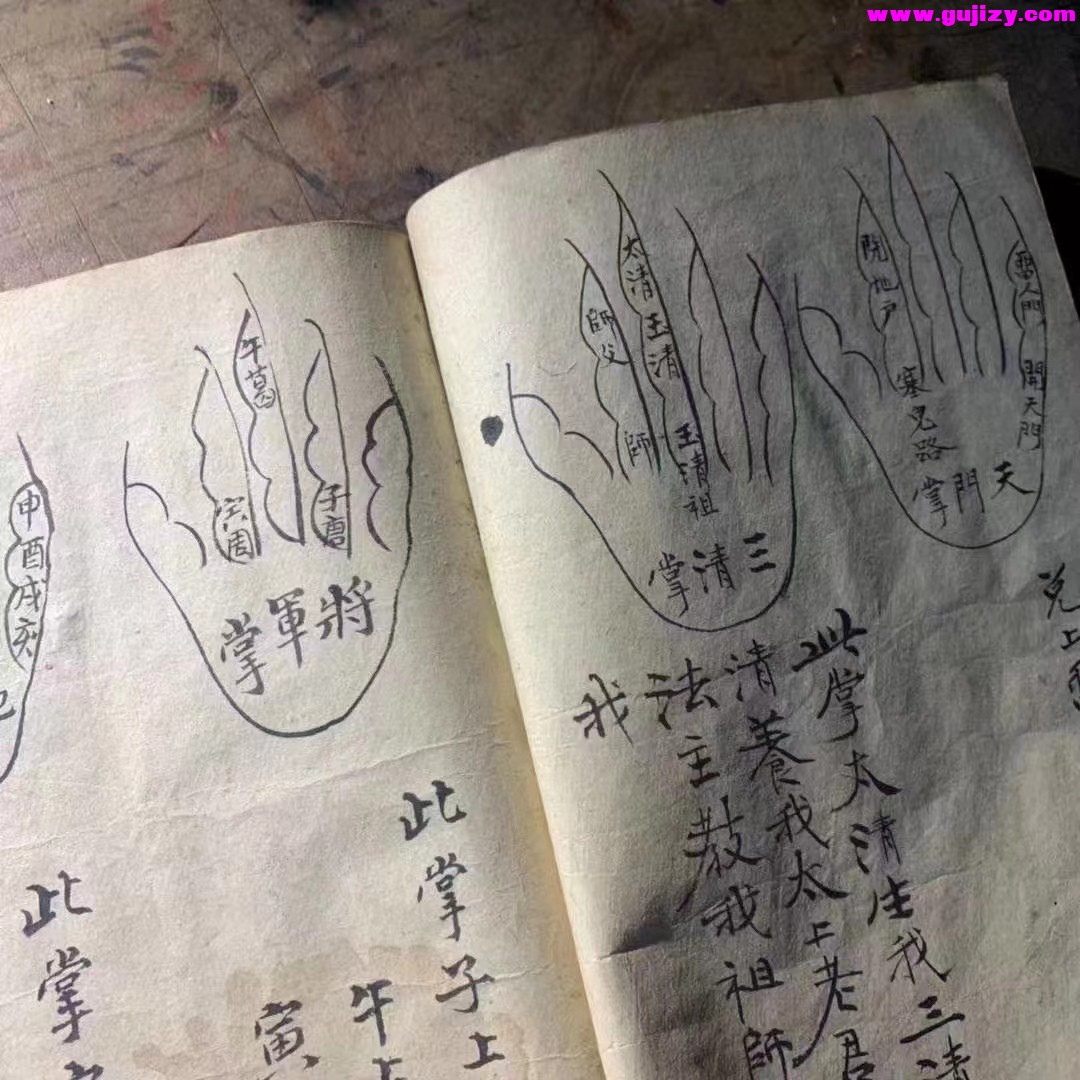 www.gujizy.com
閉地戶
留人門
開天門
塞鬼路
天門掌
太清
玉清
玉清祖
師父
師
三清掌
此掌太清生我三清
清養我太上老君
法主教我祖師
我
兌上
午葛
寅周
子唐
將軍掌
此掌子上
午上
寅
申酉戌亥
此掌